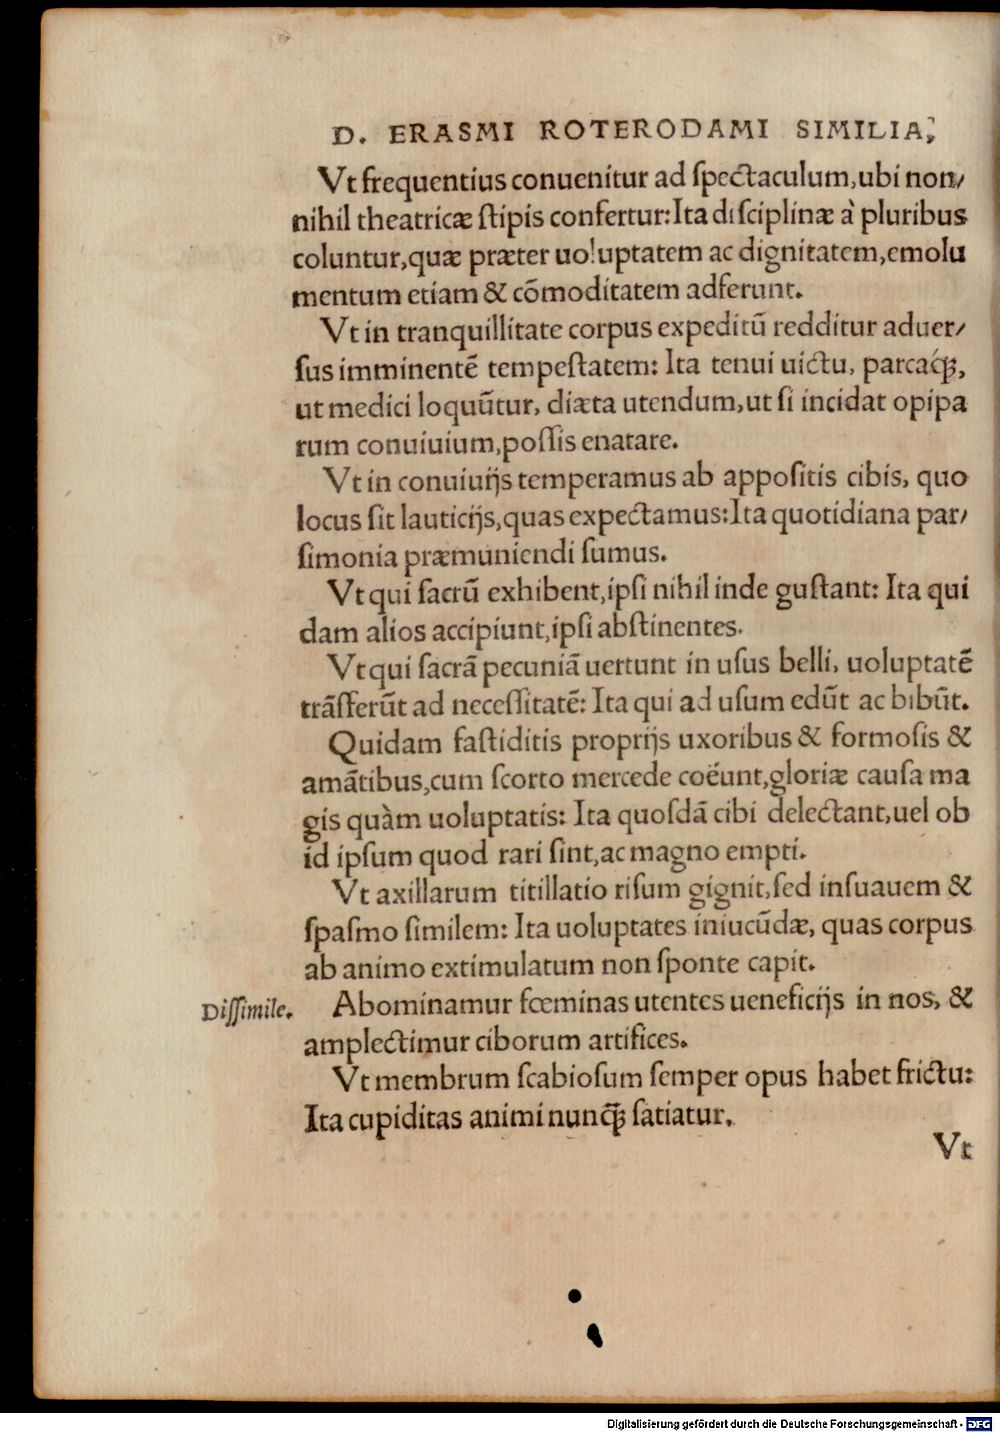 D. ERASMI ROTERODAMI SIMILIA,
Vt frequentius conuenitur ad ſpectaculum, ubi non/
nihil theatricæ ſtipis confertur: Ita diſciplinæ à pluribus
coluntur, quæ præter uoluptatem ac dignitatem, emolu
mentum etiam & cõmoditatem adferunt.
Vt in tranquillitate corpus expeditũ redditur aduer/
ſus imminentẽ tempeſtatem: Ita tenui uictu, parcaq́ꝫ,
ut medici loquũtur, diæta utendum, ut ſi incidat opipa
rum conuiuium, poſſis enatare.
Vt in conuiuijs temperamus ab appoſitis cibis, quo
locus ſit lauticijs, quas expectamus: Ita quotidiana par/
ſimonia præmuniendi ſumus.
Vt qui ſacrũ exhibent, ipſi nihil inde guſtant: Ita qui
dam alios accipiunt, ipſi abſtinentes.
Vt qui ſacrã pecuniã uertunt in uſus belli, uoluptatẽ
trãſferũt ad neceſſitatẽ: Ita qui ad uſum edũt ac bibũt.
Quidam faſtiditis proprijs uxoribus & formoſis &
amãtibus, cum ſcorto mercede coëunt, gloriæ cauſa ma
gis quàm uoluptatis: Ita quoſdã cibi delectant, uel ob
id ipſum quod rari ſint, ac magno empti.
Vt axillarum titillatio riſum gignit, ſed inſuauem &
ſpaſmo ſimilem: Ita uoluptates iniucũdæ, quas corpus
ab animo extimulatum non ſponte capit.
Diſſimile. Abominamur fœminas utentes ueneficijs in nos, &
amplectimur ciborum artifices.
Vt membrum ſcabioſum ſemper opus habet frictu:
Ita cupiditas animi nunq̃ꝫ ſatiatur.
Vt
Digitalisierung gefördert durch die Deutsche Forschungsgemeinschaft - DFG